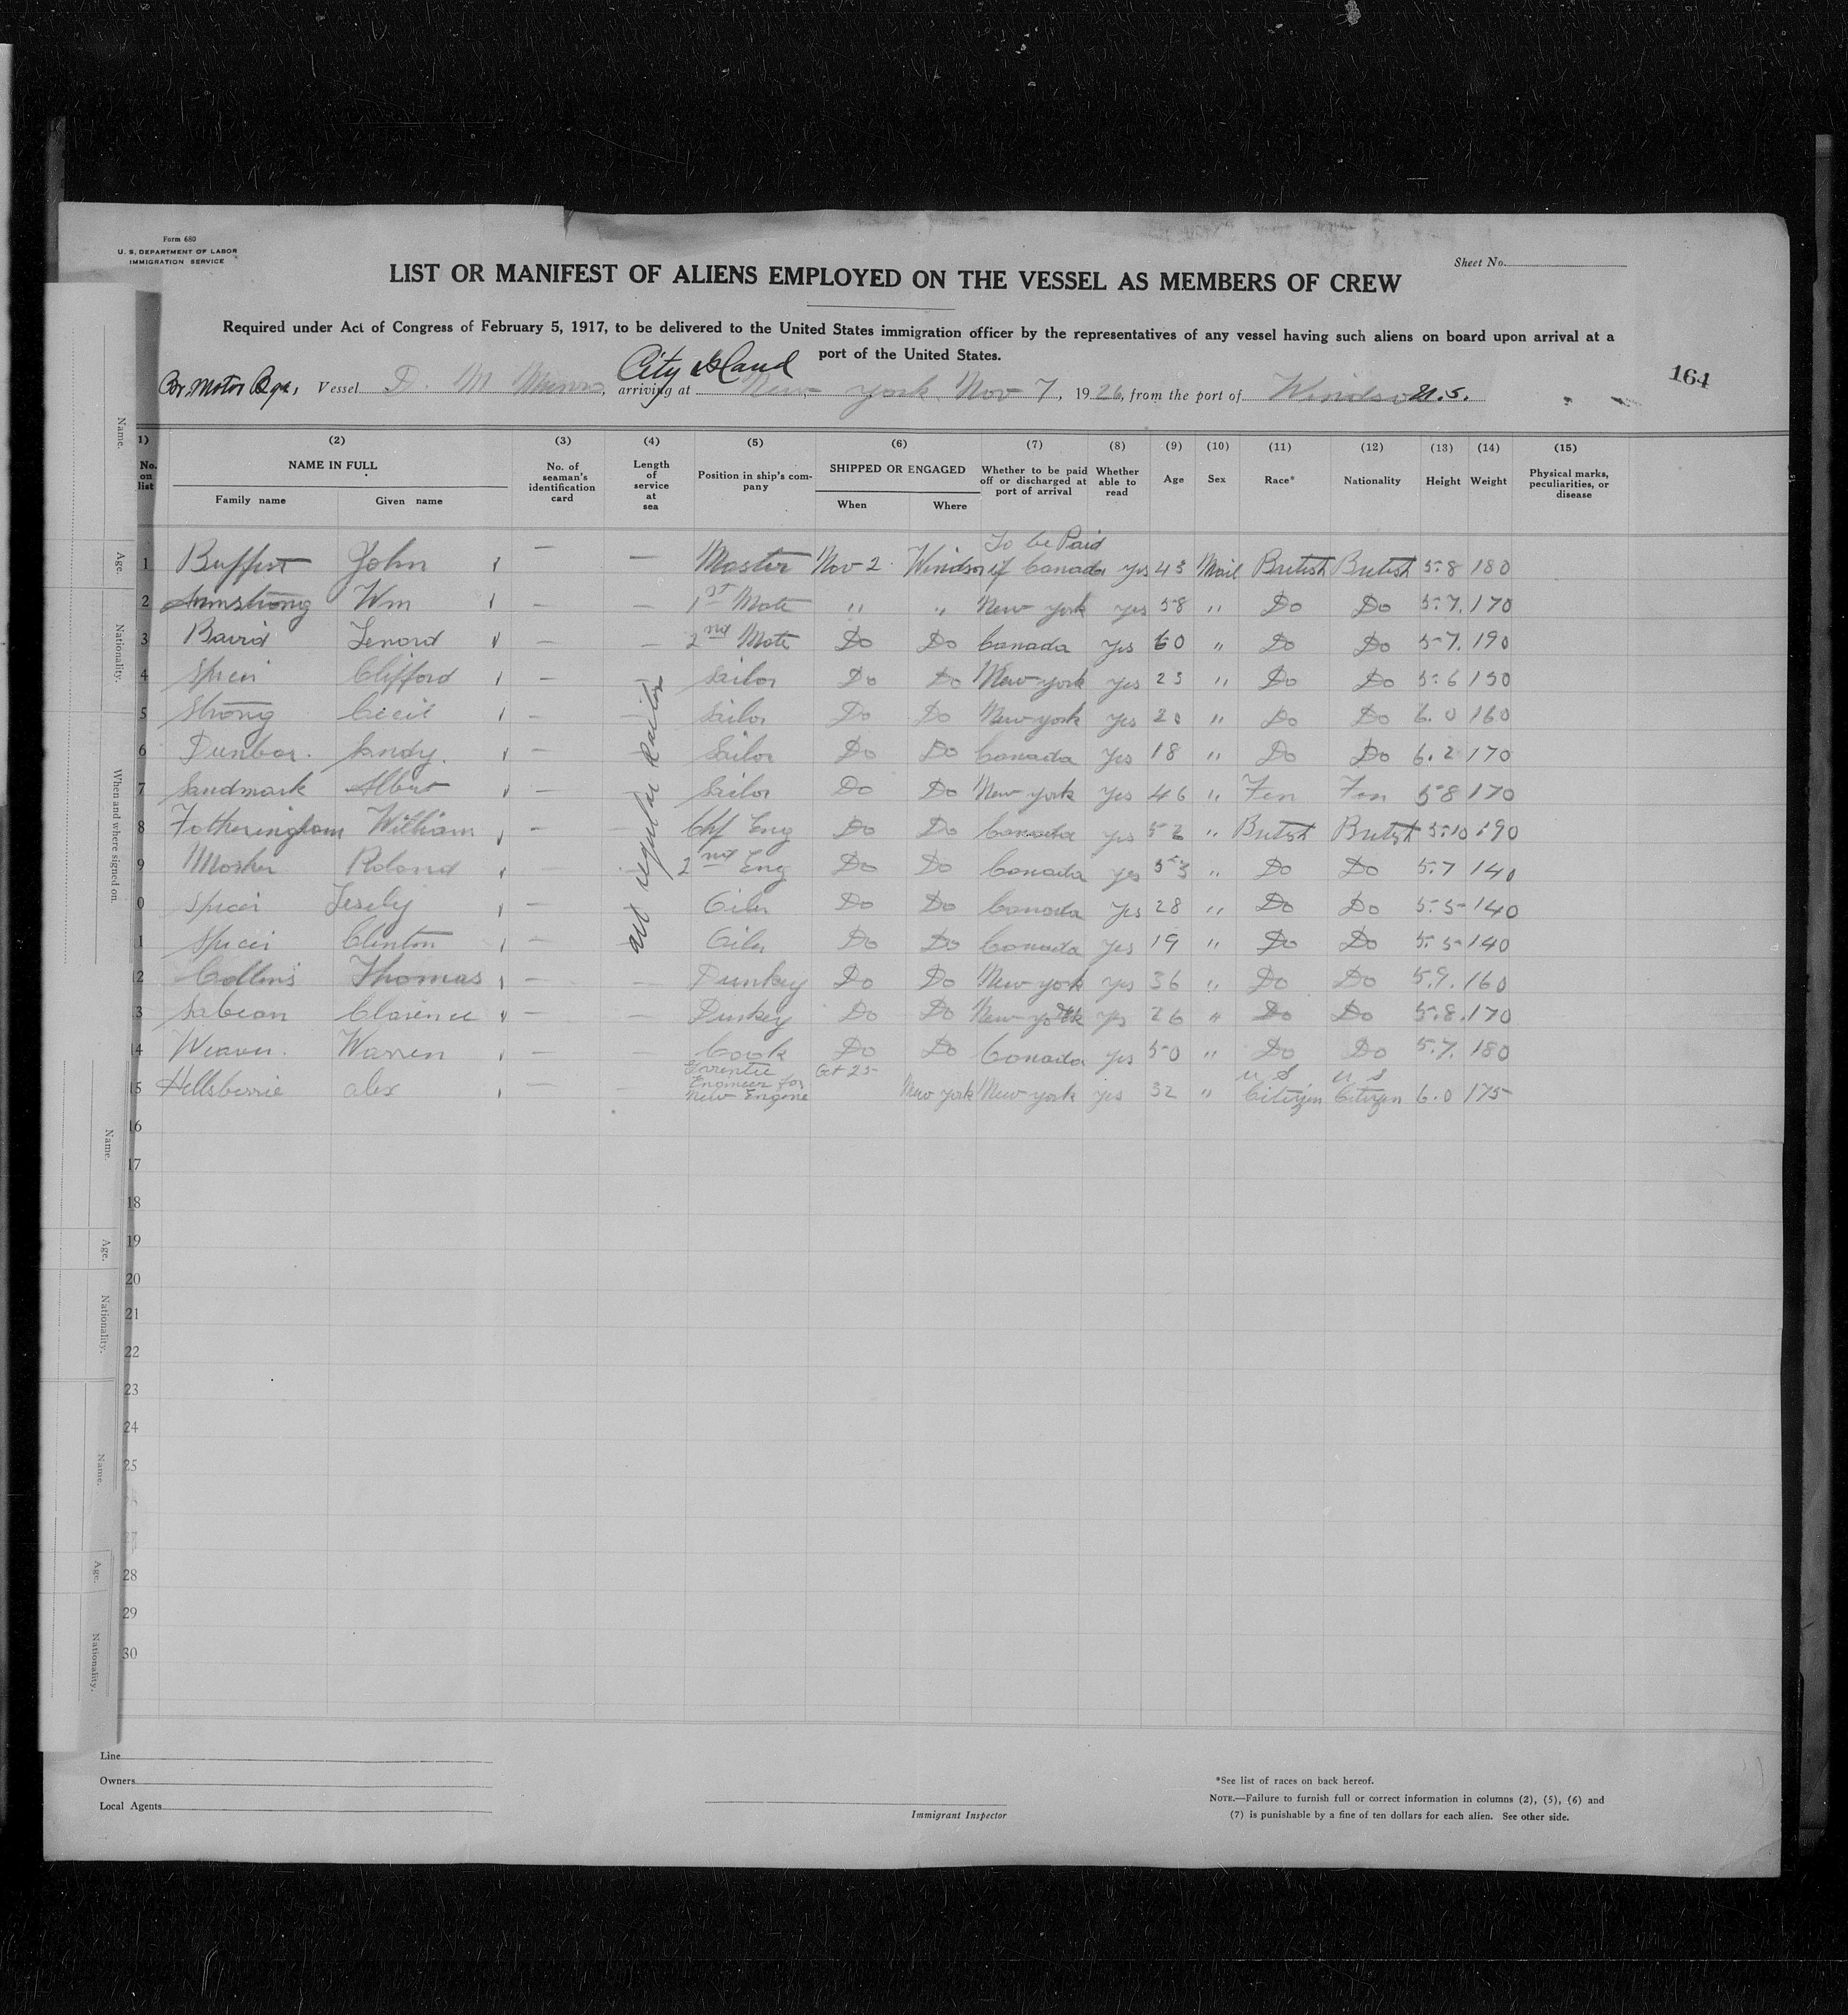 Form 680
U. S. DEPARTMENT OF LABOR
IMMIGRATION SERVICE
Sheet No.
LIST OR MANIFEST OF ALIENS EMPLOYED ON THE VESSEL AS MEMBERS OF CREW
Required under Act of Congress of February 5, 1917, to be delivered to the United States immigration officer by the representatives of any vessel having such aliens on board upon arrival at a
port of the United States.
164
City Island
Br. Motor Bge, Vessel D. M Munro, arriving at New York Nov 7, 1926, from the port of Windsor N.S.
(1) (2) (3) (4) (5) (6) (7) (8) (9) (10) (11) (12) (13) (14) (15)
No. on list NAME IN FULL Family name Given name No. of seaman's identification card Length of service at sea Position in ship's company SHIPPED OR ENGAGED When Where Whether to be paid off or discharged at port of arrival Whether able to read Age Sex Race* Nationality Height Weight Physical marks, peculiarities, or disease
To be Paid
1 John — — Master Nov 2 Windsor if Canada yes 43 Mail British British 5.8 180
2 Armstrong Wm — — 1st Mate " " New York yes 58 " Do Do 5.7. 170
3 Baird Lenord — — 2nd Mate Do Do Canada yes 60 " Do Do 5.7. 190
4 Spicer Clifford — Sailor Do Do New York yes 23 " Do Do 5.6 150
5 Strong Cecil — — Sailor Do Do New York yes 20 " Do Do 6.0 160
6 Dunbar. Andy. — Sailor Do Do Canada yes 18 " Do Do 6.2 170
7 Sandmark Albert — Sailor Do Do New York yes 46 " Fen Fen 5 8 170
8 Fotheringham William — — Chf Eng Do Do Canada yes 52 " British British 5.10 190
9 Mosher Roland — — 2nd Eng Do Do Canada yes 53 " Do Do 5.7 140
0 Spicer Lesely — Oiler Do Do Canada yes 28 " Do Do 5.5 140
1 Spicer Clinton — Oiler Do Do Canada yes 19 " Do Do 5.5 140
2 Collins Thomas — — Dunkey Do Do New York yes 36 " Do Do 5.9. 160
3 Sabean Clarence — — Dunkey Do Do New York yes 26 " Do Do 5.8. 170
4 Weaver. Warren — — Cook Do Do Canada yes 50 " Do Do 5.7. 180
15 Hellsberrie Alex — — Engineer for New Engine Oct 25 New York New York yes 32 " U S Citizen U S Citizen 6.0 175
all regular sailors
16
17
18
19
20
21
22
23
24
25
28
29
30
Name.
Age.
Nationality.
When and where signed on.
Name.
Age.
Nationality.
Name.
Age.
Nationality.
Line
Owners
Local Agents
Immigrant Inspector
*See list of races on back hereof.
NOTE.—Failure to furnish full or correct information in columns (2), (5), (6) and
(7) is punishable by a fine of ten dollars for each alien. See other side.